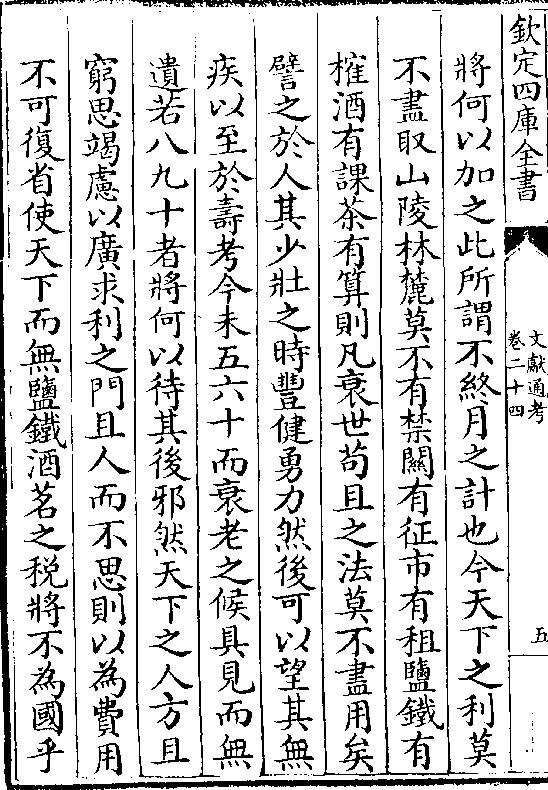 欽定四庫全書
文獻通考
卷二十四
五
將何以加之此所謂不終月之計也今天下之利莫
不盡取山陵林麓莫不有禁關有征市有租鹽鐵有
榷酒有課茶有算則凡衰世苟且之法莫不盡用矣
譬之於人其少壯之時豐健勇力然後可以望其無
疾以至於壽考今未五六十而衰老之候具見而無
遺若八九十者將何以待其後邪然天下之人方且
窮思竭慮以廣求利之門且人而不思則以為費用
不可復省使天下而無鹽鐵酒茗之稅將不為國乎